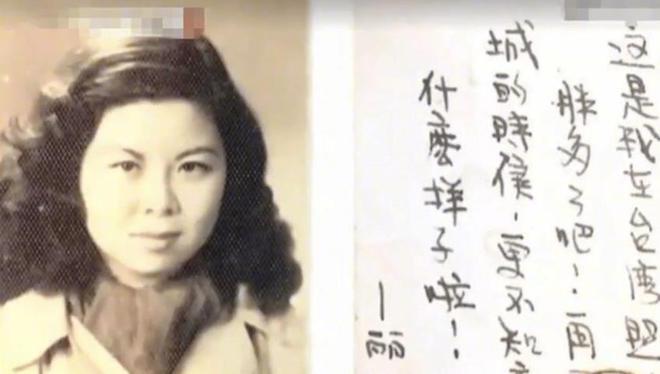 这是我在台湾照
胖多了吧！再
城的時候，更不知
什麼樣子啦！
一丽